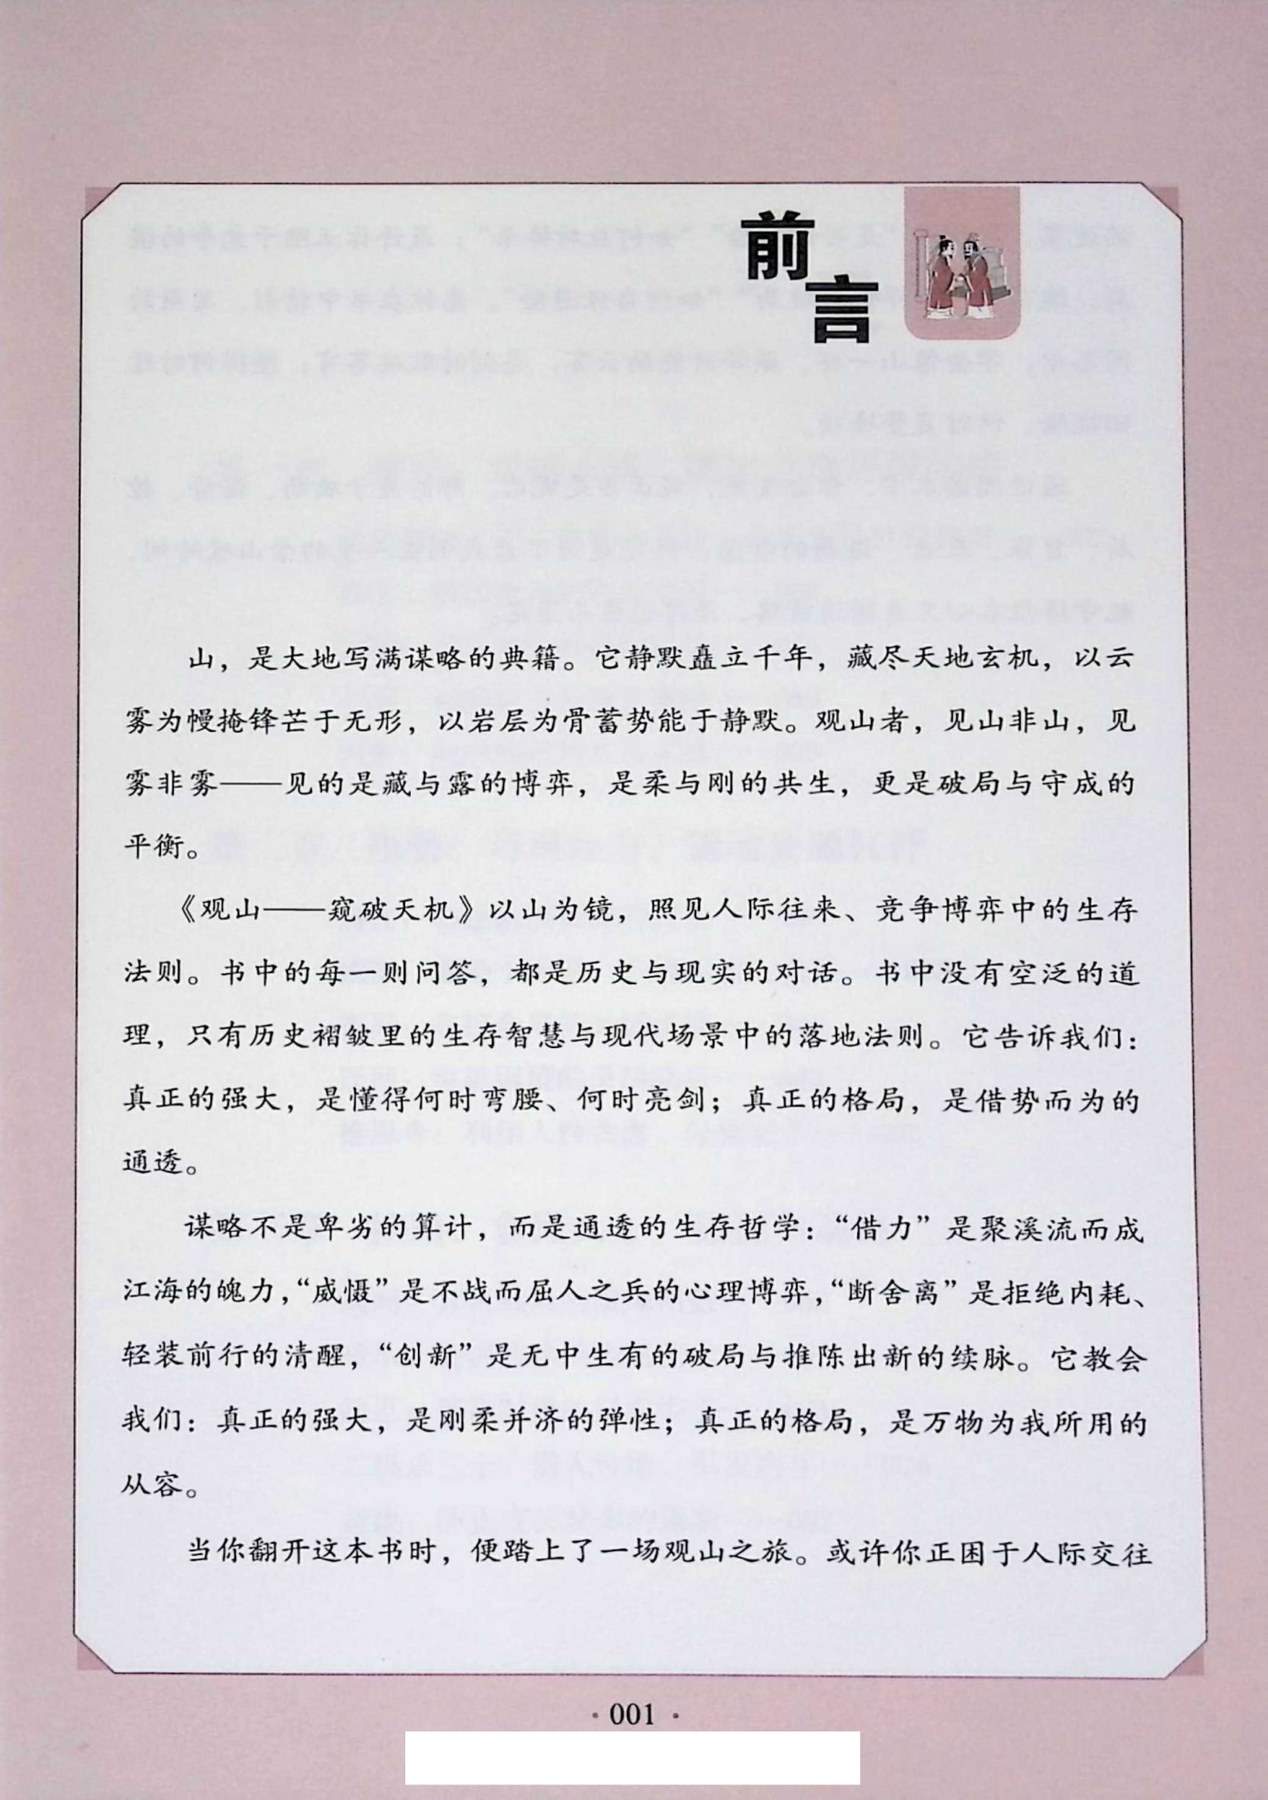 前言
山，是大地写满谋略的典籍。它静默矗立千年，藏尽天地玄机，以云
雾为幔掩锋芒于无形，以岩层为骨蓄势能于静默。观山者，见山非山，见
雾非雾——见的是藏与露的博弈，是柔与刚的共生，更是破局与守成的
平衡。
《观山——窥破天机》以山为镜，照见人际往来、竞争博弈中的生存
法则。书中的每一则问答，都是历史与现实的对话。书中没有空泛的道
理，只有历史褶皱里的生存智慧与现代场景中的落地法则。它告诉我们：
真正的强大，是懂得何时弯腰、何时亮剑；真正的格局，是借势而为的
通透。
谋略不是卑劣的算计，而是通透的生存哲学：“借力”是聚溪流而成
江海的魄力，“威慑”是不战而屈人之兵的心理博弈，“断舍离”是拒绝内耗、
轻装前行的清醒，“创新”是无中生有的破局与推陈出新的续脉。它教会
我们：真正的强大，是刚柔并济的弹性；真正的格局，是万物为我所用的
从容。
当你翻开这本书时，便踏上了一场观山之旅。或许你正困于人际交往
· 001 ·